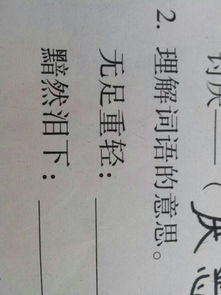 讨厌——(厌恶
2. 理解词语的意思。
无足重轻：
黯然泪下：